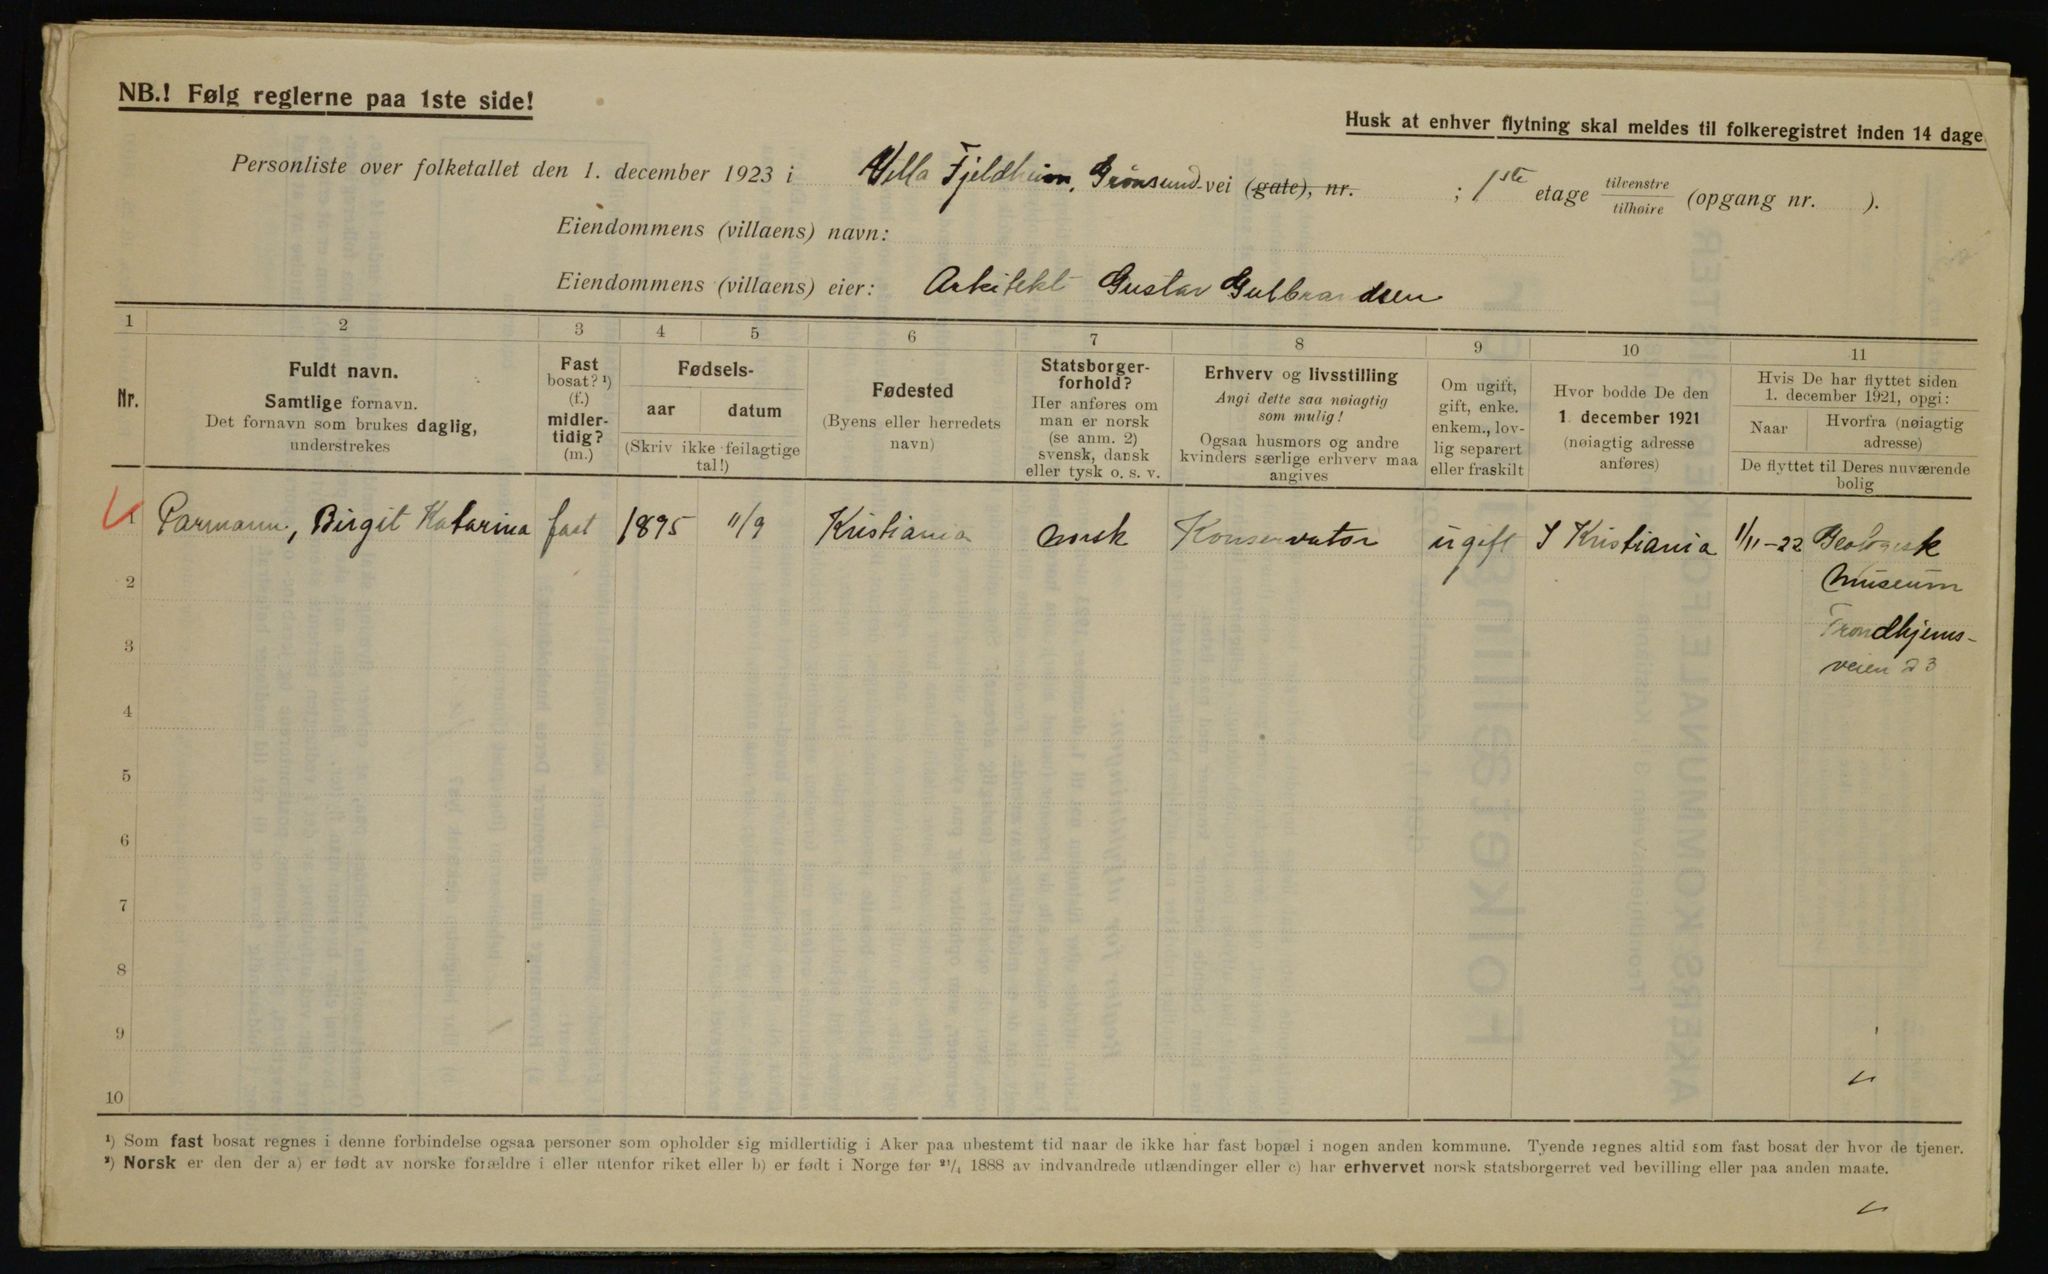 NB.! Følg reglerne paa 1ste side!
Husk at enhver flytning skal meldes til folkeregistret inden 14 dage
Personliste over folketallet den 1. december 1923 i Villa Fjeldheim, Grønsund-vei (gate), nr. ; 1ste etage tilvenstre tilhøire (opgang nr. ).
Eiendommens (villaens) navn:
Eiendommens (villaens) eier: Arkitekt Gustav Gulbrandsen
1 2 3 4 5 6 7 8 9 10 11
Nr.
Fuldt navn.
Samtlige fornavn.
Det fornavn som brukes daglig,
understrekes
Fast
bosat? ¹)
(f.)
midler-
tidig?
(m.)
Fødsels-
aar datum
(Skriv ikke feilagtige
tal!)
Fødested
(Byens eller herredets
navn)
Statsborger-
forhold?
Her anføres om
man er norsk
(se anm. 2)
svensk, dansk
eller tysk o. s. v.
Erhverv og livsstilling
Angi dette saa nøiagtig
som mulig!
Ogsaa husmors og andre
kvinders særlige erhverv maa
angives
Om ugift,
gift, enke.
enkem., lov-
lig separert
eller fraskilt
Hvor bodde De den
1. december 1921
(nøiagtig adresse
anføres)
Hvis De har flyttet siden
1. december 1921, opgi:
Naar
Hvorfra (nøiagtig
adresse)
De flyttet til Deres nuværende
bolig
1 Parmann, Birgit Katarina fast 1895 11/9 Kristiania norsk Konservator ugift I Kristiania 1/11-22 Geologisk
2 museum
3 Trondhjems-
veien 23
4
5
6
7
8
9
10
¹) Som fast bosat regnes i denne forbindelse ogsaa personer som opholder sig midlertidig i Aker paa ubestemt tid naar de ikke har fast bopæl i nogen anden kommune. Tyende regnes altid som fast bosat der hvor de tjener.
²) Norsk er den der a) er født av norske forældre i eller utenfor riket eller b) er født i Norge før ²¹/₄ 1888 av indvandrede utlændinger eller c) har erhvervet norsk statsborgerret ved bevilling eller paa anden maate.